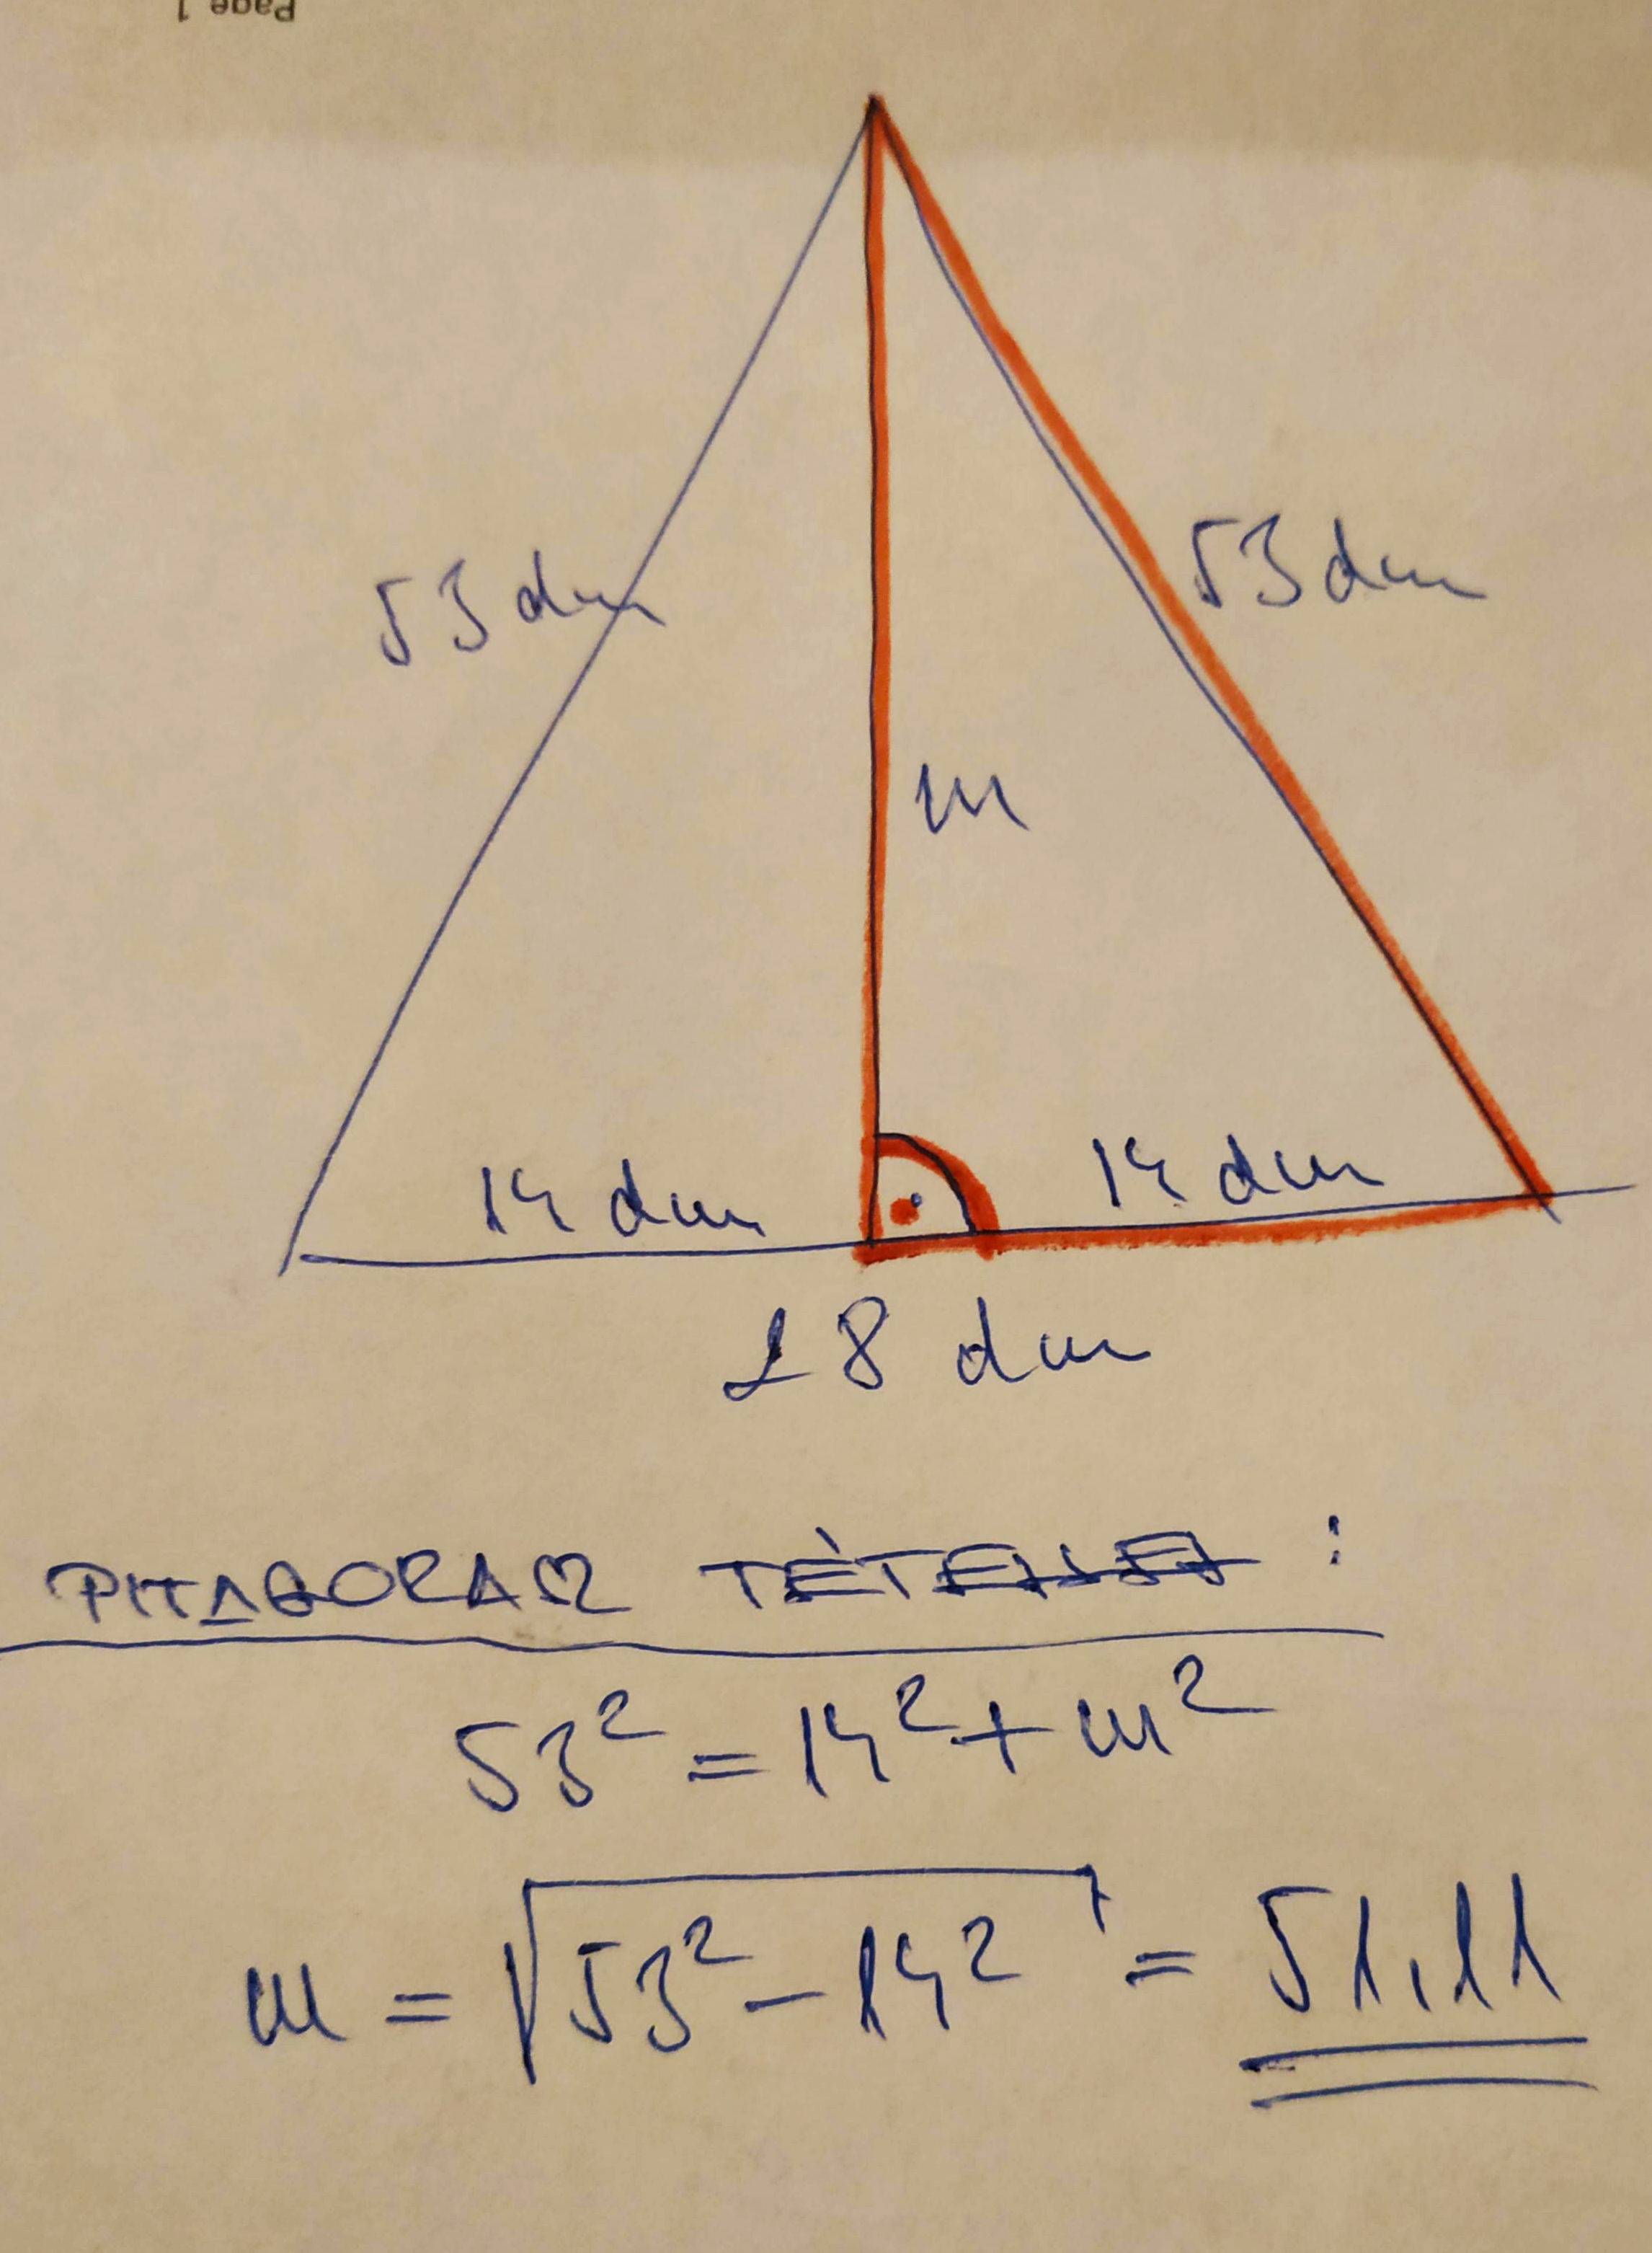 Page 1
53 dm
53 dm
m
14 dm
14 dm
28 dm
PITAGORASZ TÉTELLEL :
53² = 14² + m²
m = √53² - 14² = 51,11